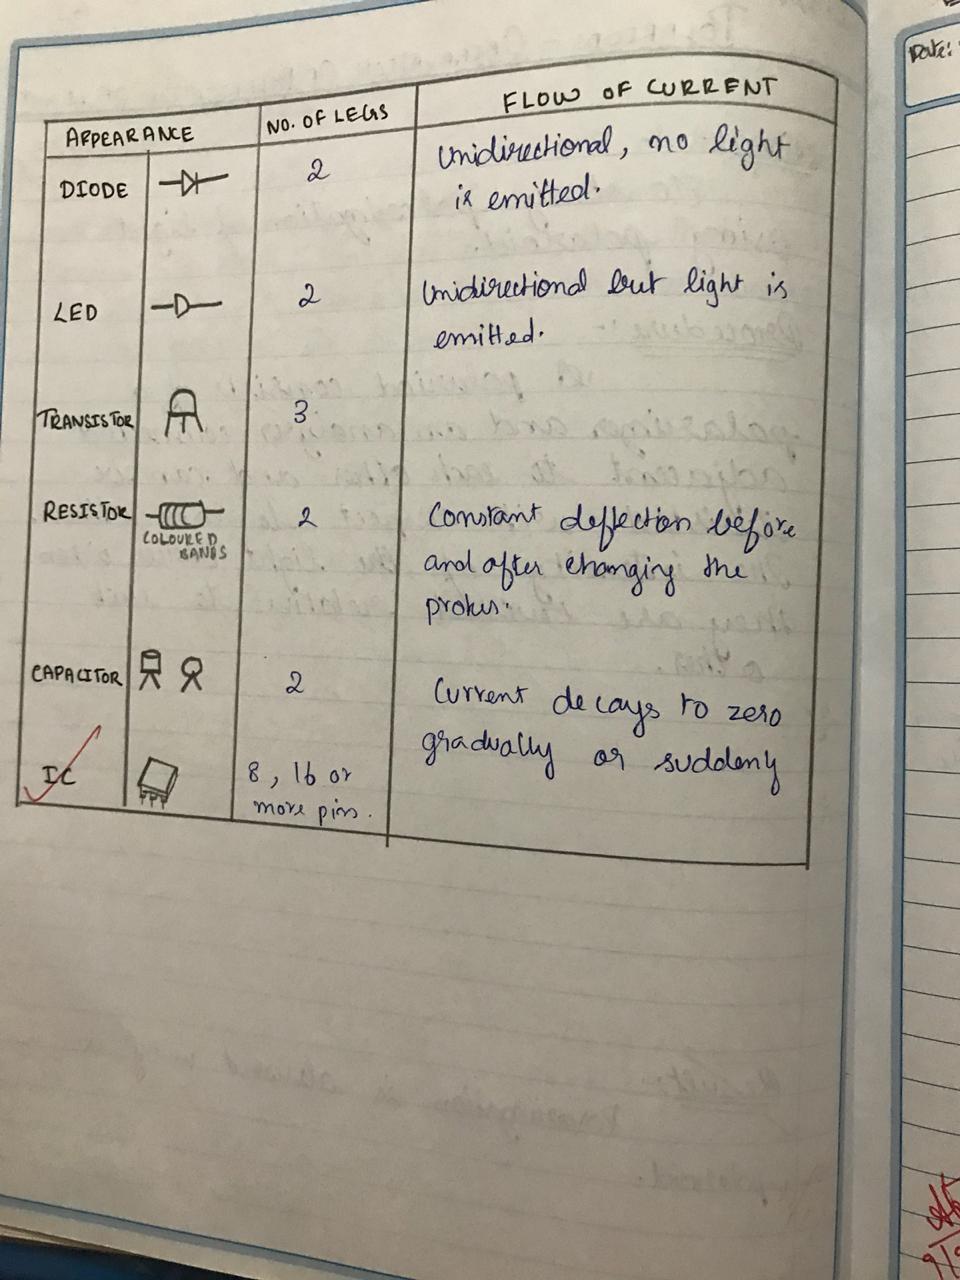 Date:
APPEARANCE NO. OF LEGS FLOW OF CURRENT
DIODE 2 Unidirectional, no light
is emitted.
LED 2 Unidirectional but light is
emitted.
TRANSISTOR 3
RESISTOR 2 Constant deflection before
COLOURED
BANDS
and after changing the
probes.
CAPACITOR 2 Current decays to zero
gradually or suddenly
IC 8, 16 or
more pins.